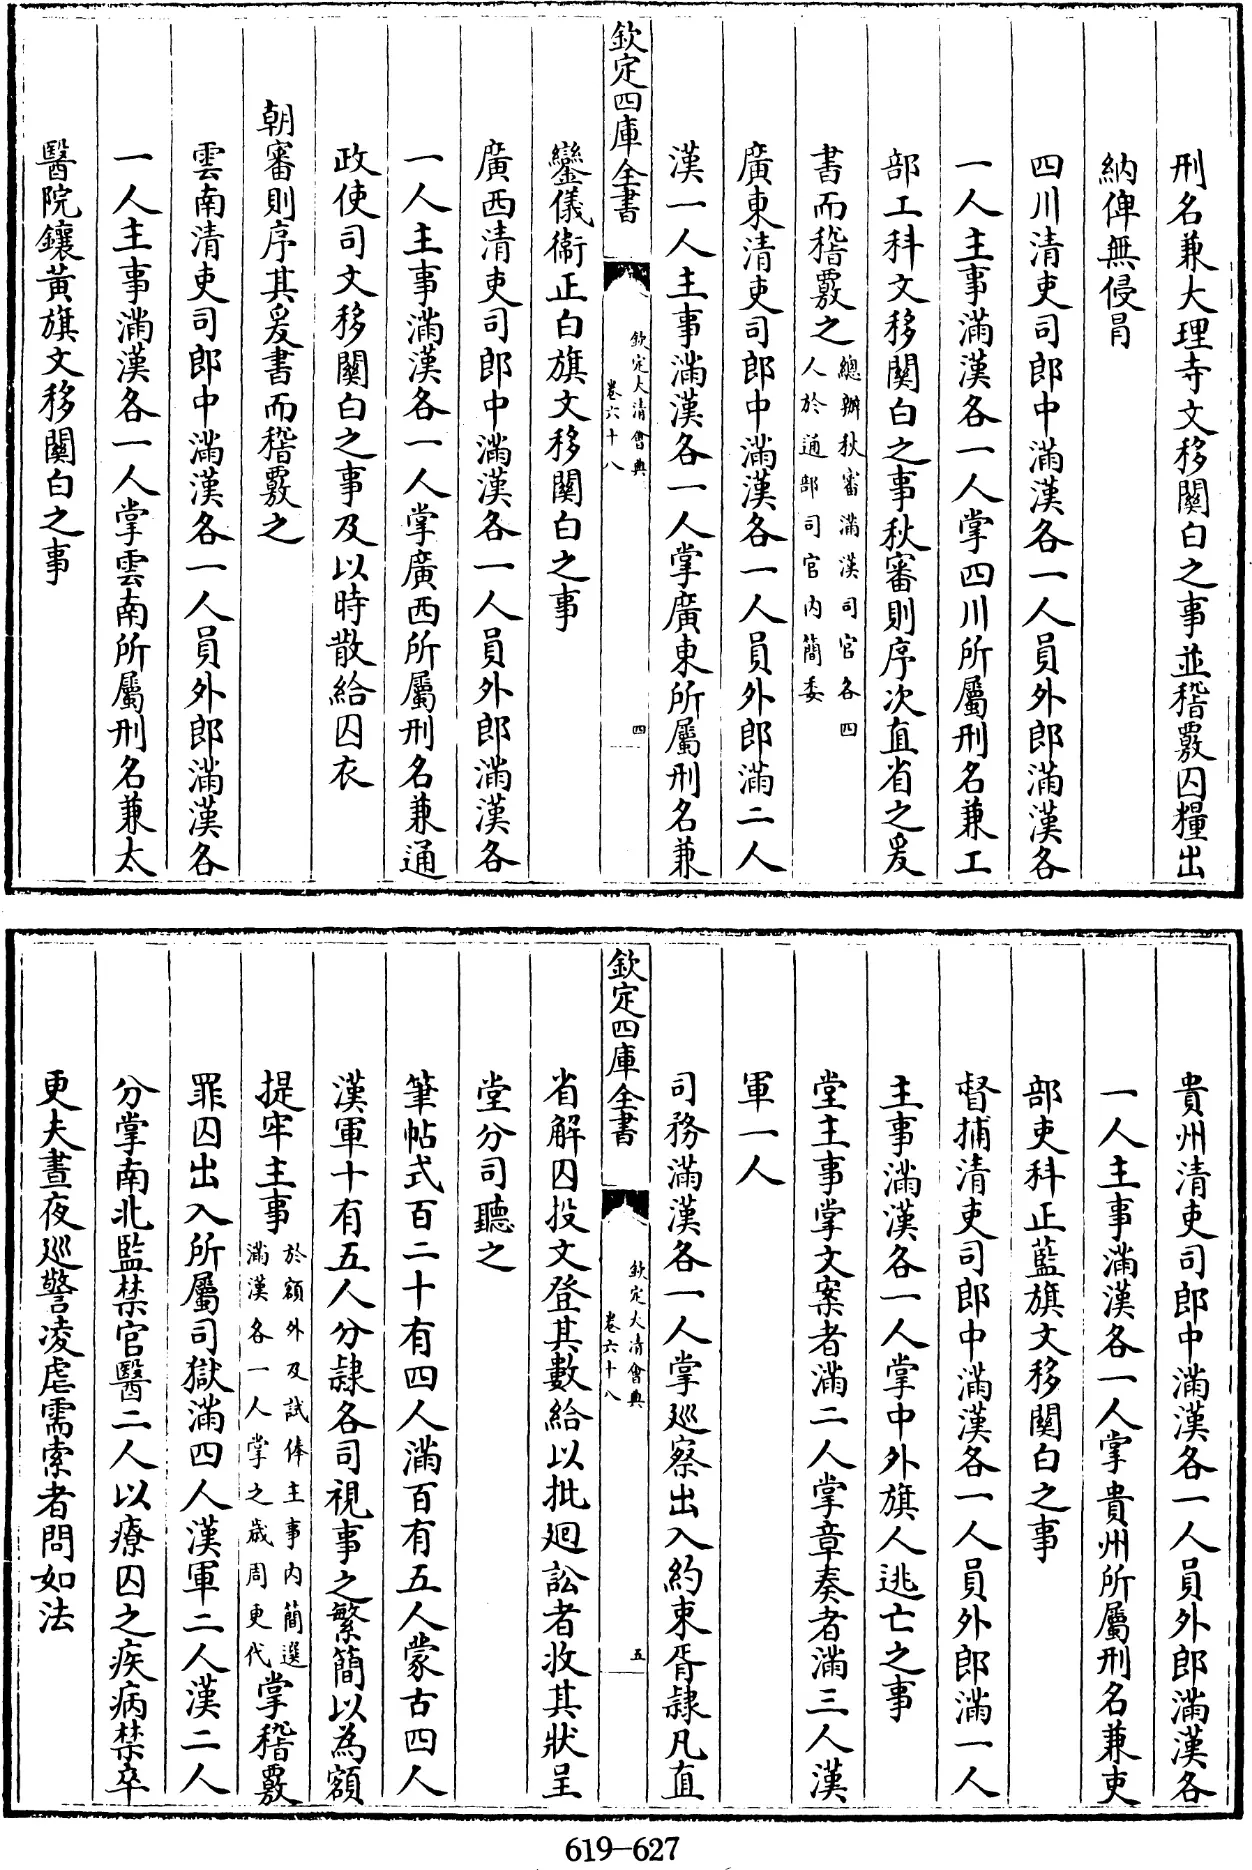 刑名兼大理寺文移關白之事並稽覈囚糧出
納俾無侵冒
四川清吏司郎中滿漢各一人員外郎滿漢各
一人主事滿漢各一人掌四川所屬刑名兼工
部工科文移關白之事秋審則序次直省之爰
書而稽覈之總辦秋審滿漢司官各四人於通部司官內簡委
廣東清吏司郎中滿漢各一人員外郎滿二人
漢一人主事滿漢各一人掌廣東所屬刑名兼
欽定四庫全書 欽定大清會典 卷六十八 四
鑾儀衛正白旗文移關白之事
廣西清吏司郎中滿漢各一人員外郎滿漢各
一人主事滿漢各一人掌廣西所屬刑名兼通
政使司文移關白之事及以時散給囚衣
朝審則序其爰書而稽覈之
雲南清吏司郎中滿漢各一人員外郎滿漢各
一人主事滿漢各一人掌雲南所屬刑名兼太
醫院鑲黃旗文移關白之事
貴州清吏司郎中滿漢各一人員外郎滿漢各
一人主事滿漢各一人掌貴州所屬刑名兼吏
部吏科正藍旗文移關白之事
督捕清吏司郎中滿漢各一人員外郎滿一人
主事滿漢各一人掌中外旗人逃亡之事
堂主事掌文案者滿二人掌章奏者滿三人漢
軍一人
司務滿漢各一人掌巡察出入約束胥隸凡直
欽定四庫全書 欽定大清會典 卷六十八 五
省解囚投文登其數給以批迴訟者收其狀呈
堂分司聽之
筆帖式百二十有四人滿百有五人蒙古四人
漢軍十有五人分隸各司視事之繁簡以為額
提牢主事於額外及試俸主事內簡選滿漢各一人掌之歲周更代掌稽覈
罪囚出入所屬司獄滿四人漢軍二人漢二人
分掌南北監禁官醫二人以療囚之疾病禁卒
更夫晝夜巡警凌虐需索者問如法
619-627